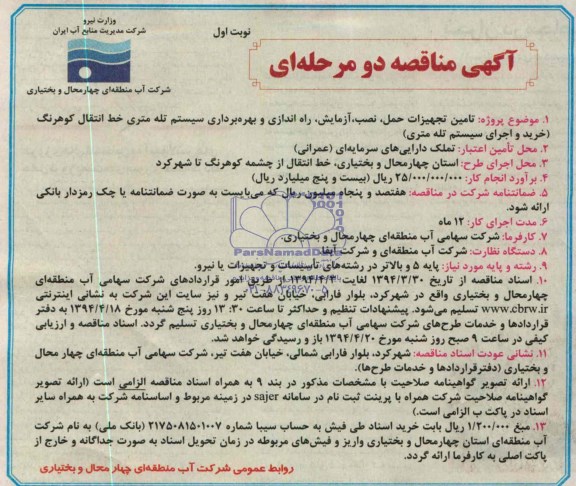 وزارت نیرو
شرکت مدیریت منابع آب ایران
شرکت آب منطقه‌ای چهارمحال و بختیاری
نوبت اول
آگهی مناقصه دو مرحله‌ای
۱. موضوع پروژه: تامین تجهیزات حمل، نصب،آزمایش، راه اندازی و بهره‌برداری سیستم تله متری خط انتقال کوهرنگ
(خرید و اجرای سیستم تله متری)
۲. محل تأمین اعتبار: تملک دارایی‌های سرمایه‌ای (عمرانی)
۳. محل اجرای طرح: استان چهارمحال و بختیاری، خط انتقال از چشمه کوهرنگ تا شهرکرد
۴. برآورد انجام کار: ۲۵/۰۰۰/۰۰۰/۰۰۰ ریال (بیست و پنج میلیارد ریال)
۵. ضمانتنامه شرکت در مناقصه: هفتصد و پنجاه میلیون ریال که می‌بایست به صورت ضمانتنامه یا چک رمزدار بانکی
ارائه شود.
۶. مدت اجرای کار: ۱۲ ماه
۷. کارفرما: شرکت سهامی آب منطقه‌ای چهارمحال و بختیاری.
۸. دستگاه نظارت: شرکت آب منطقه‌ای و شرکت آبفا.
ParsNamadData
۹. رشته و پایه مورد نیاز: پایه ۵ و بالاتر در رشته‌های تأسیسات و تجهیزات یا نیرو.
۱۰. اسناد مناقصه از تاریخ ۱۳۹۴/۳/۳۰ لغایت ۱۳۹۴/۴/۳ از طریق دفتر قراردادهای شرکت سهامی آب منطقه‌ای
چهارمحال و بختیاری واقع در شهرکرد، بلوار فارابی، خیابان هفت تیر و نیز سایت این شرکت به نشانی اینترنتی
www.cbrw.ir تسلیم می‌شود. پیشنهادات تنظیم و حداکثر تا ساعت ۱۳:۳۰ روز پنج شنبه مورخ ۱۳۹۴/۴/۱۸ به دفتر
قراردادها و خدمات طرح‌های شرکت سهامی آب منطقه‌ای چهارمحال و بختیاری تسلیم گردد. اسناد مناقصه و ارزیابی
کیفی در ساعت ۹ صبح روز شنبه مورخ ۱۳۹۴/۴/۲۰ باز و رسیدگی خواهد شد.
۱۱. نشانی عودت اسناد مناقصه: شهرکرد، بلوار فارابی شمالی، خیابان هفت تیر، شرکت سهامی آب منطقه‌ای چهار محال
و بختیاری (دفترقراردادها و خدمات طرح‌ها).
۱۲. ارائه تصویر گواهینامه صلاحیت با مشخصات مذکور در بند ۹ به همراه اسناد مناقصه الزامی است (ارائه تصویر
گواهینامه صلاحیت شرکت همراه با پرینت ثبت نام در سامانه sajer در زمینه مربوط و اساسنامه شرکت به همراه سایر
اسناد در پاکت ب الزامی است.)
۱۳. مبلغ ۱/۲۰۰/۰۰۰ ریال بابت خرید اسناد طی فیش به حساب سیبا شماره ۲۱۷۵۰۸۱۵۰۱۰۰۷ (بانک ملی) به نام شرکت
آب منطقه‌ای استان چهارمحال و بختیاری واریز و فیش‌های مربوطه در زمان تحویل اسناد به صورت جداگانه و خارج از
پاکت اصلی به کارفرما ارائه گردد.
روابط عمومی شرکت آب منطقه‌ای چهار محال و بختیاری